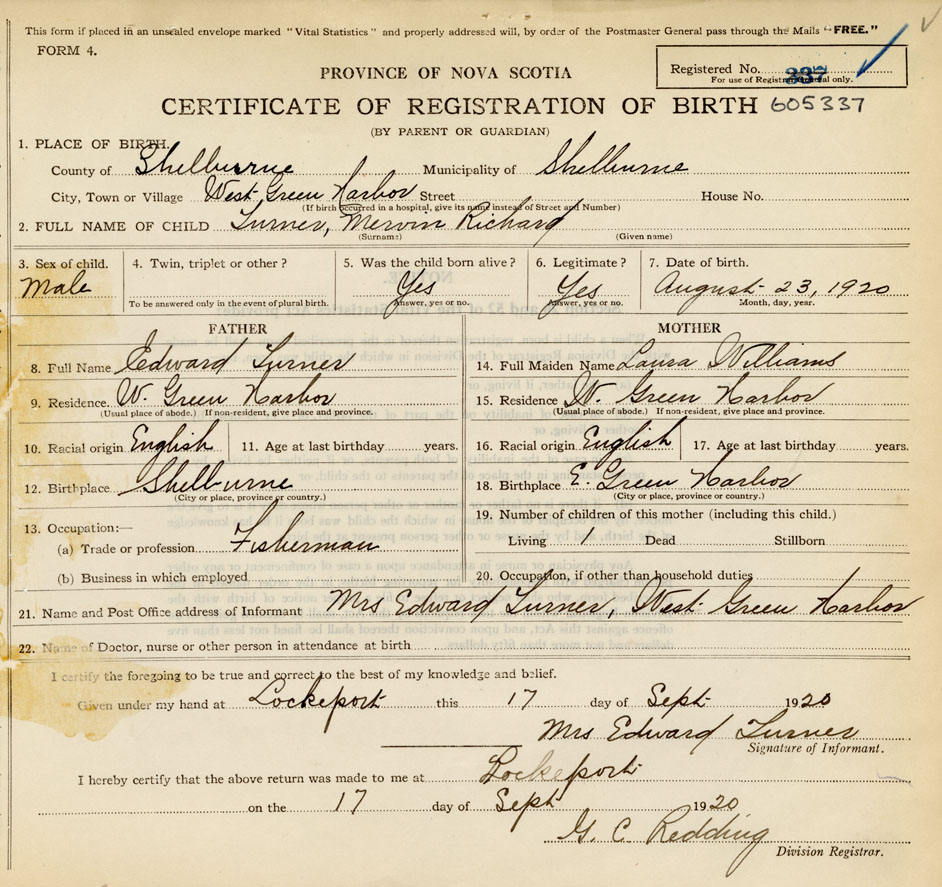 This form if placed in an unsealed envelope marked "Vital Statistics" and properly addressed will, by order of the Postmaster General pass through the Mails "FREE."
FORM 4.
Registered No. 337
For use of Registrar General only.
PROVINCE OF NOVA SCOTIA
CERTIFICATE OF REGISTRATION OF BIRTH 605337
(BY PARENT OR GUARDIAN)
1. PLACE OF BIRTH.
County of Shelburne Municipality of Shelburne
City, Town or Village West Green Harbor Street House No.
(If birth occurred in a hospital, give its name instead of Street and Number)
2. FULL NAME OF CHILD Turner, Mervin Richard
(Surname) (Given name)
3. Sex of child. 4. Twin, triplet or other? 5. Was the child born alive? 6. Legitimate? 7. Date of birth.
Male Yes Yes August 23, 1920
To be answered only in the event of plural birth. Answer, yes or no. Answer, yes or no. Month, day, year.
FATHER
8. Full Name Edward Turner
9. Residence. W. Green Harbor
(Usual place of abode.) If non-resident, give place and province.
10. Racial origin English 11. Age at last birthday years.
12. Birthplace Shelburne
(City or place, province or country.)
13. Occupation:—
(a) Trade or profession Fisherman
(b) Business in which employed
MOTHER
14. Full Maiden Name Laura Williams
15. Residence W. Green Harbor
(Usual place of abode.) If non-resident, give place and province.
16. Racial origin English 17. Age at last birthday years.
18. Birthplace E. Green Harbor
(City or place, province or country.)
19. Number of children of this mother (including this child.)
Living 1 Dead Stillborn
20. Occupation, if other than household duties
21. Name and Post Office address of Informant Mrs Edward Turner, West Green Harbor
22. Name of Doctor, nurse or other person in attendance at birth
I certify the foregoing to be true and correct to the best of my knowledge and belief.
Given under my hand at Lockeport this 17 day of Sept 1920
Mrs Edward Turner
Signature of Informant.
I hereby certify that the above return was made to me at Lockeport
on the 17 day of Sept 1920
G. C. Redding
Division Registrar.